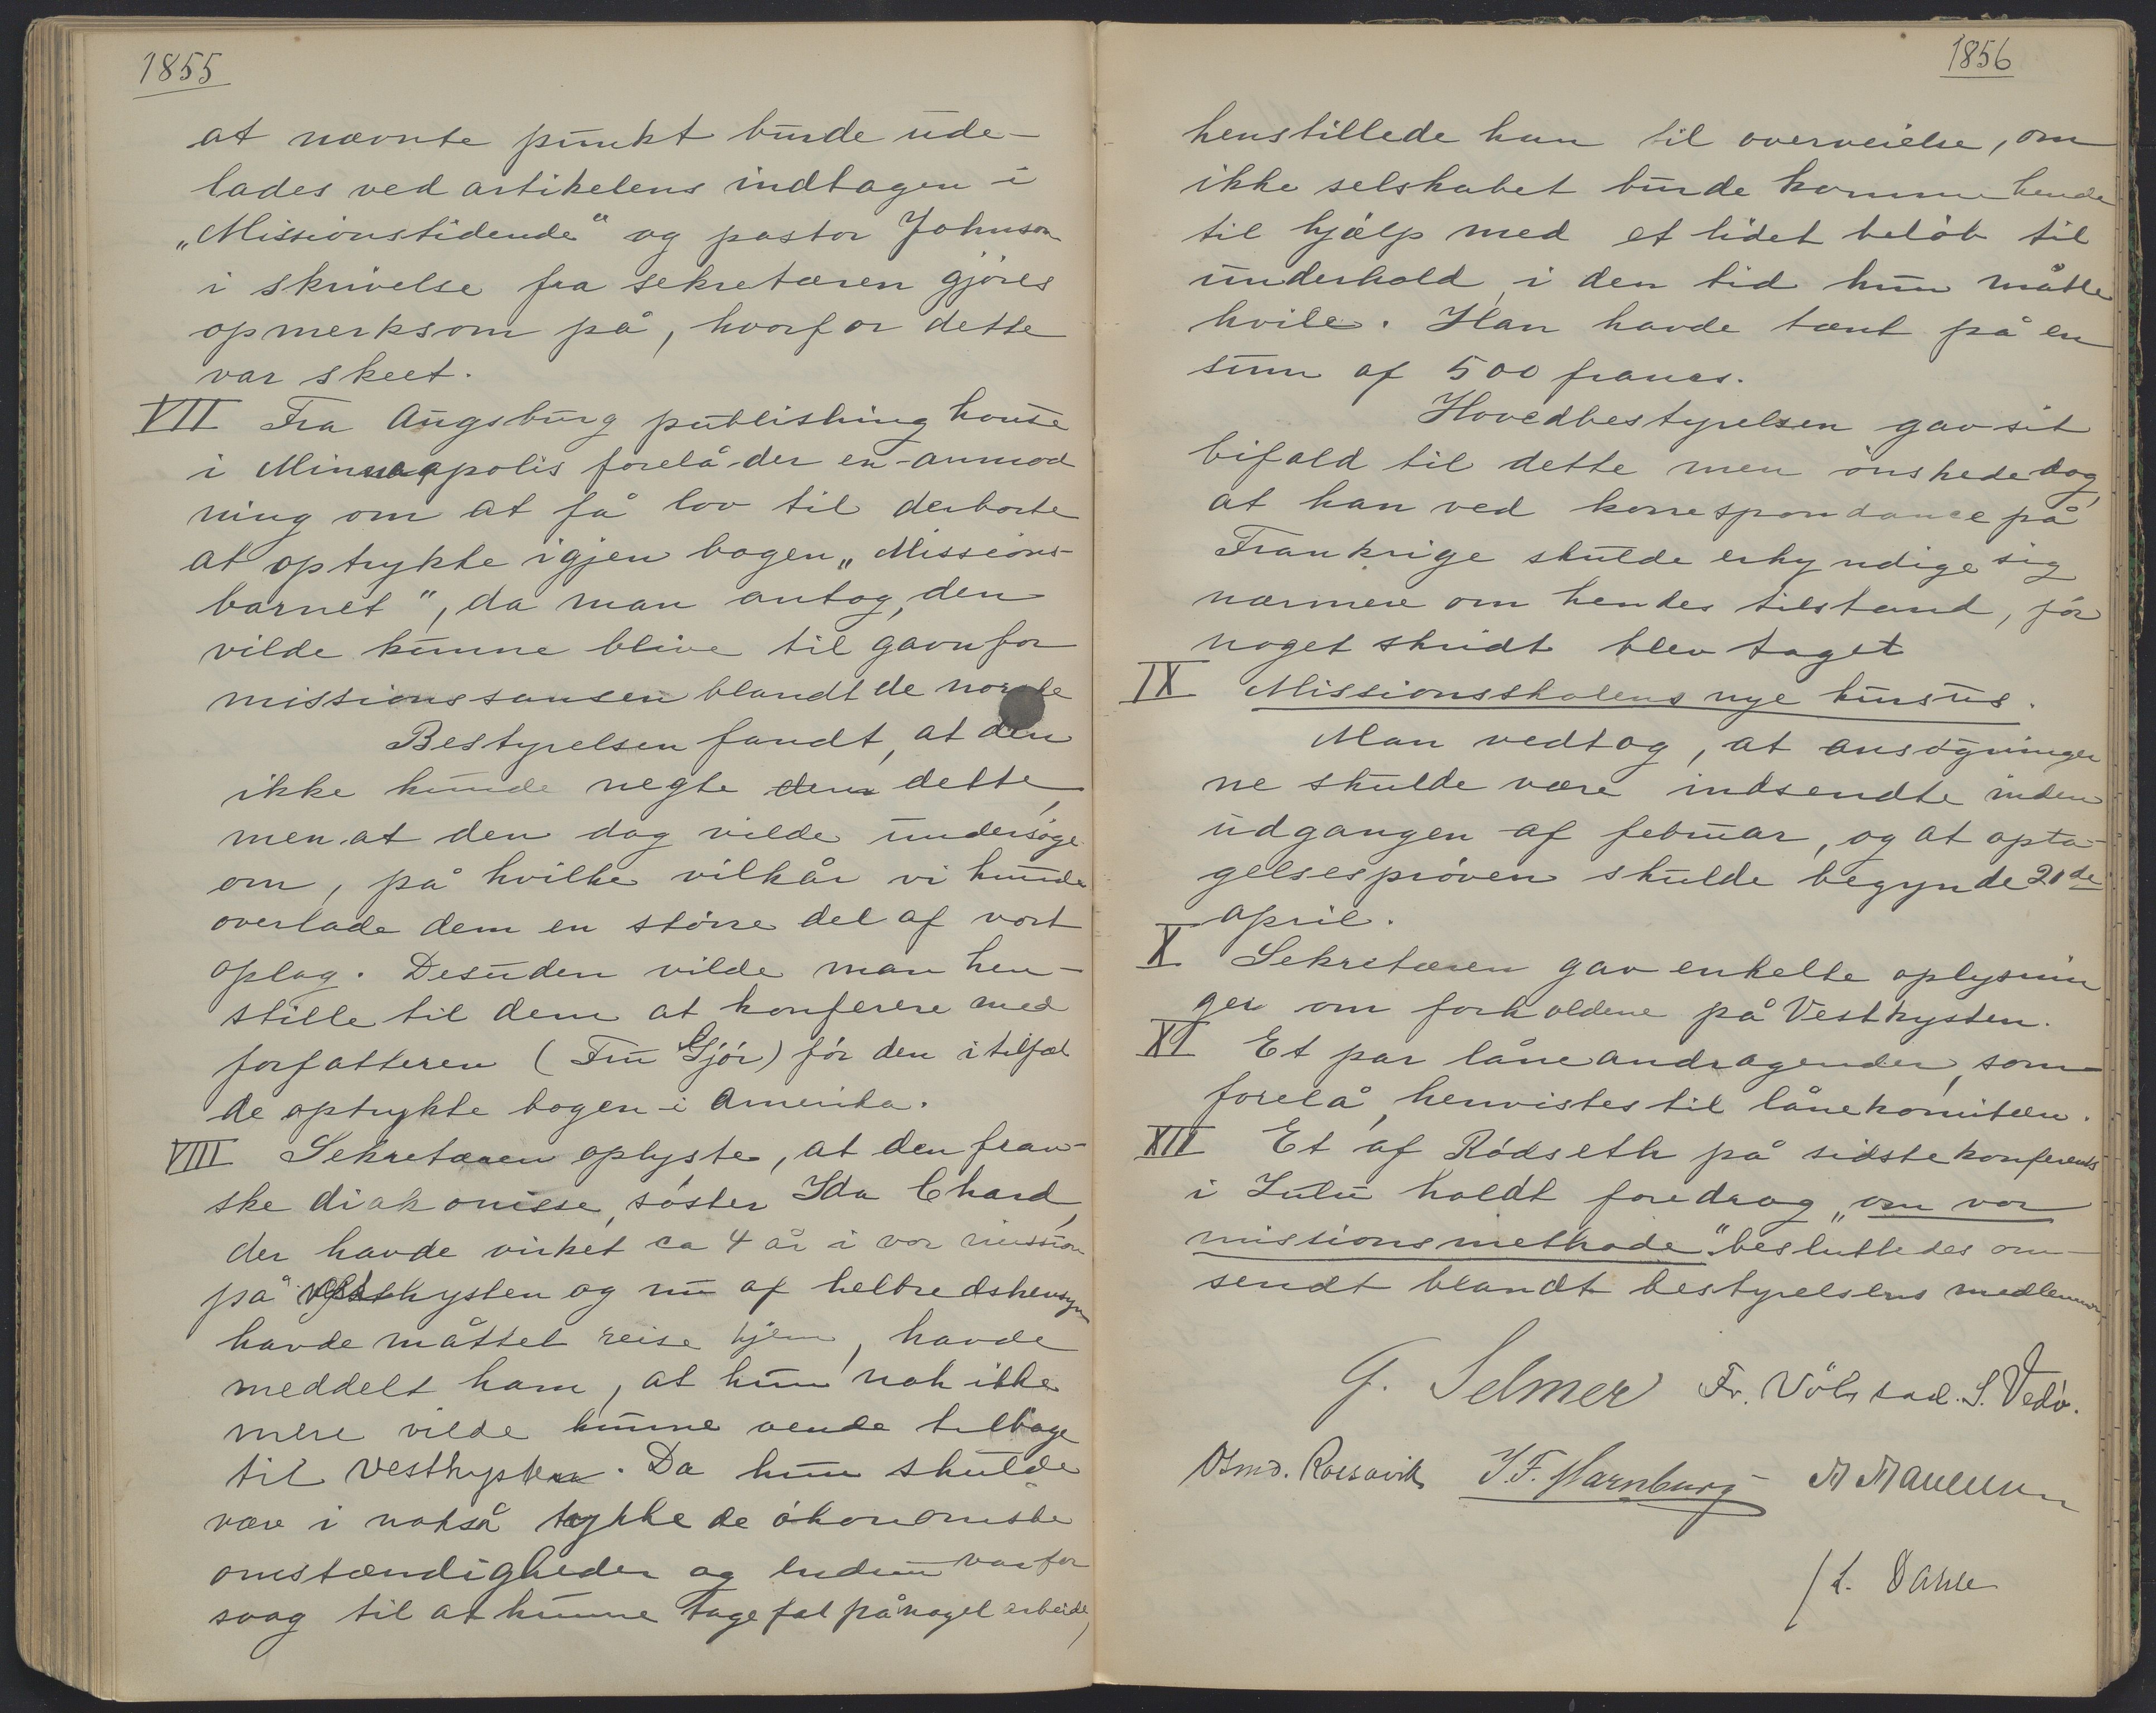 1855
at nævnte punkt burde ude-
lades ved artikelens indtagen i
„Missionstidende“ og pastor Johnson
i skrivelse fra sekretæren gjöres
opmerksom på, hvorfor dette
var skeet.
VII Fra Augsburg publishing house
i Minneapolis forelå der en anmod
ning om at få lov til derborte
at optrykke igjen bogen „Missions-
barnet“, da man antog, den
vilde kunne blive til gavn for
missionssansen blandt de norske
Bestyrelsen fandt, at den
ikke kunde negte dem dette,
men at den dog vilde undersöge
om, på hvilke vilkår vi kunde
overlade dem en större del af vort
oplag. Desuden vilde man hen-
stille til dem at konferere med
forfatteren (Fru Gjör) för den i tilfæl
de optrykte bogen i Amerika.
VIII Sekretæren oplyste, at den fran-
ske diakonisse, söster Ida Chard,
der havde virket ca 4 år i vor mission
på vestkysten og nu af helbredshensyn
havde måttet reise hjem, havde
meddelt ham, at hun nok ikke
mere vilde kunne vende tilbage
til Vestkysten. Da hun skulde
være i nokså trykkede ökonomiske
omstændigheder og endnu var for
svag til at kunne tage fat på noget arbeide,
1856
henstillede han til overveielse, om
ikke selskabet burde komme hende
til hjælp med et lidet belöb til
underhold i den tid hun måtte
hvile. Han havde tænt på en
sum af 500 francs.
Hovedbestyrelsen gav sit
bifald til dette men önskede dog,
at han ved korrespondance på
Frankrige skulde erkyndige sig
nærmere om hendes tilstand, för
noget skridt blev taget
IX Missionsskolens nye kursus.
Man vedtog, at ansögninger
ne skulde være indsendte inden
udgangen af februar, og at opta-
gelsespröven skulde begynde 20de
april.
X Sekretæren gav enkelte oplysnin
ger om forholdene på Vestkysten.
XI Et par låneandragender, som
forelå, henvistes til lånekomiteen.
XII Et af Rödseth på sidste konferents
i Zulu holdt foredrag „om vor
missionsmethode“ besluttedes om-
sendt blandt bestyrelsens medlemmer
G. Selmer Fr. Völsrad. S. Vedö.
Osmd. Rossavik J. F. Marnburg
/ L. Dahle